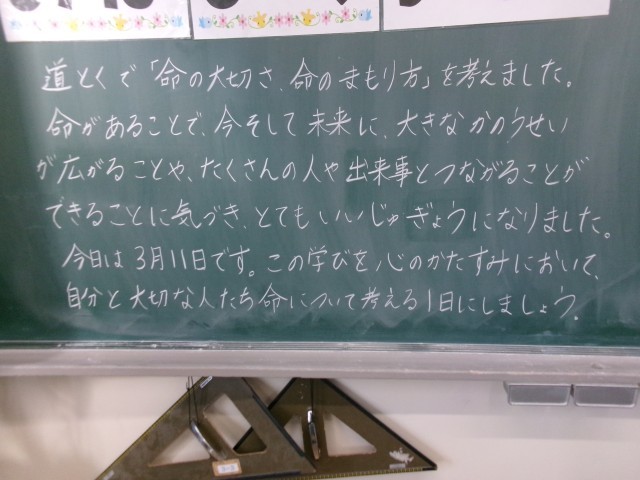 道とくで「命の大切さ、命のまもり方」を考えました。
命があることで、今そして未来に、大きなかのうせい
が広がることや、たくさんの人や出来事とつながることが
できることに気づき、とてもいいじゅぎょうになりました。
今日は3月11日です。この学びを心のかたすみにおいて、
自分と大切な人たち命について考える1日にしましょう。